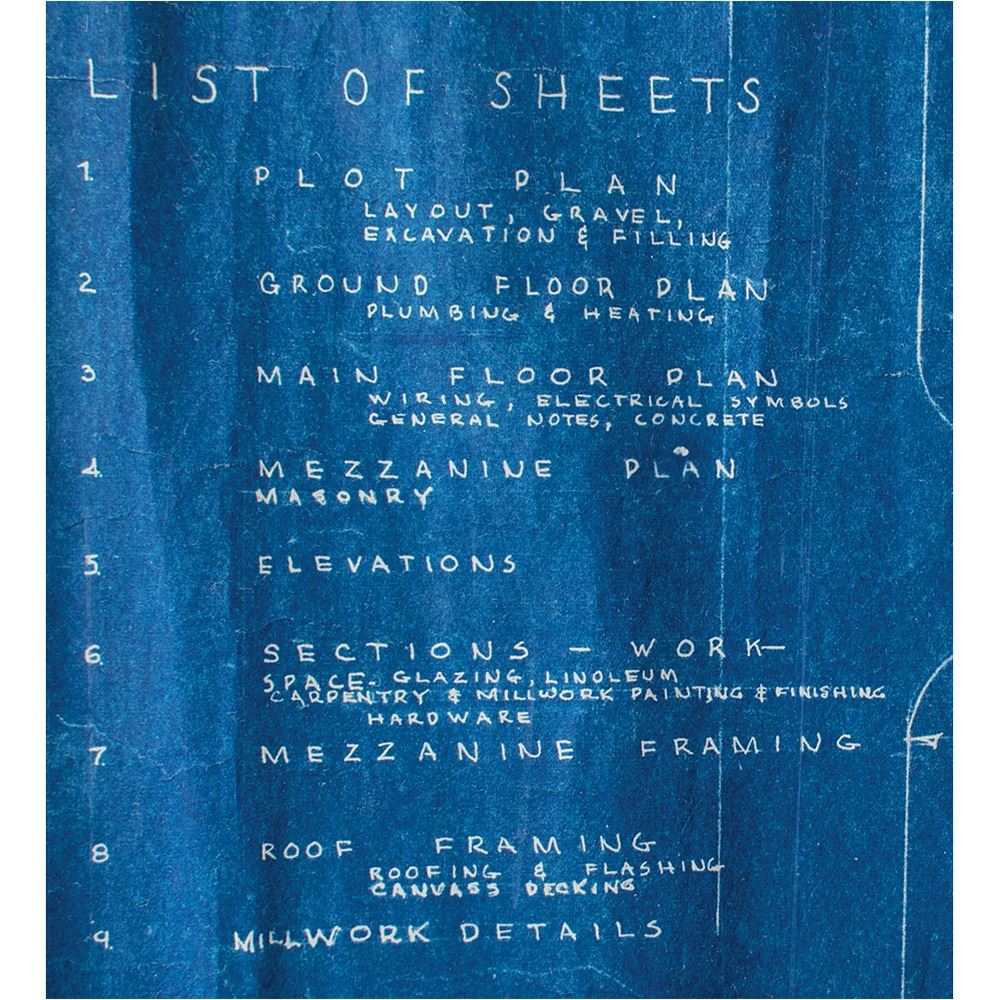 LIST OF SHEETS
1. PLOT PLAN
LAYOUT, GRAVEL,
EXCAVATION & FILLING
2 GROUND FLOOR PLAN
PLUMBING & HEATING
3 MAIN FLOOR PLAN
WIRING, ELECTRICAL SYMBOLS
GENERAL NOTES, CONCRETE
4. MEZZANINE PLAN
MASONRY
5. ELEVATIONS
6. SECTIONS — WORK—
SPACE- GLAZING, LINOLEUM
CARPENTRY & MILLWORK PAINTING & FINISHING
HARDWARE
7. MEZZANINE FRAMING
8 ROOF FRAMING
ROOFING & FLASHING
CANVASS DECKING
9. MILLWORK DETAILS